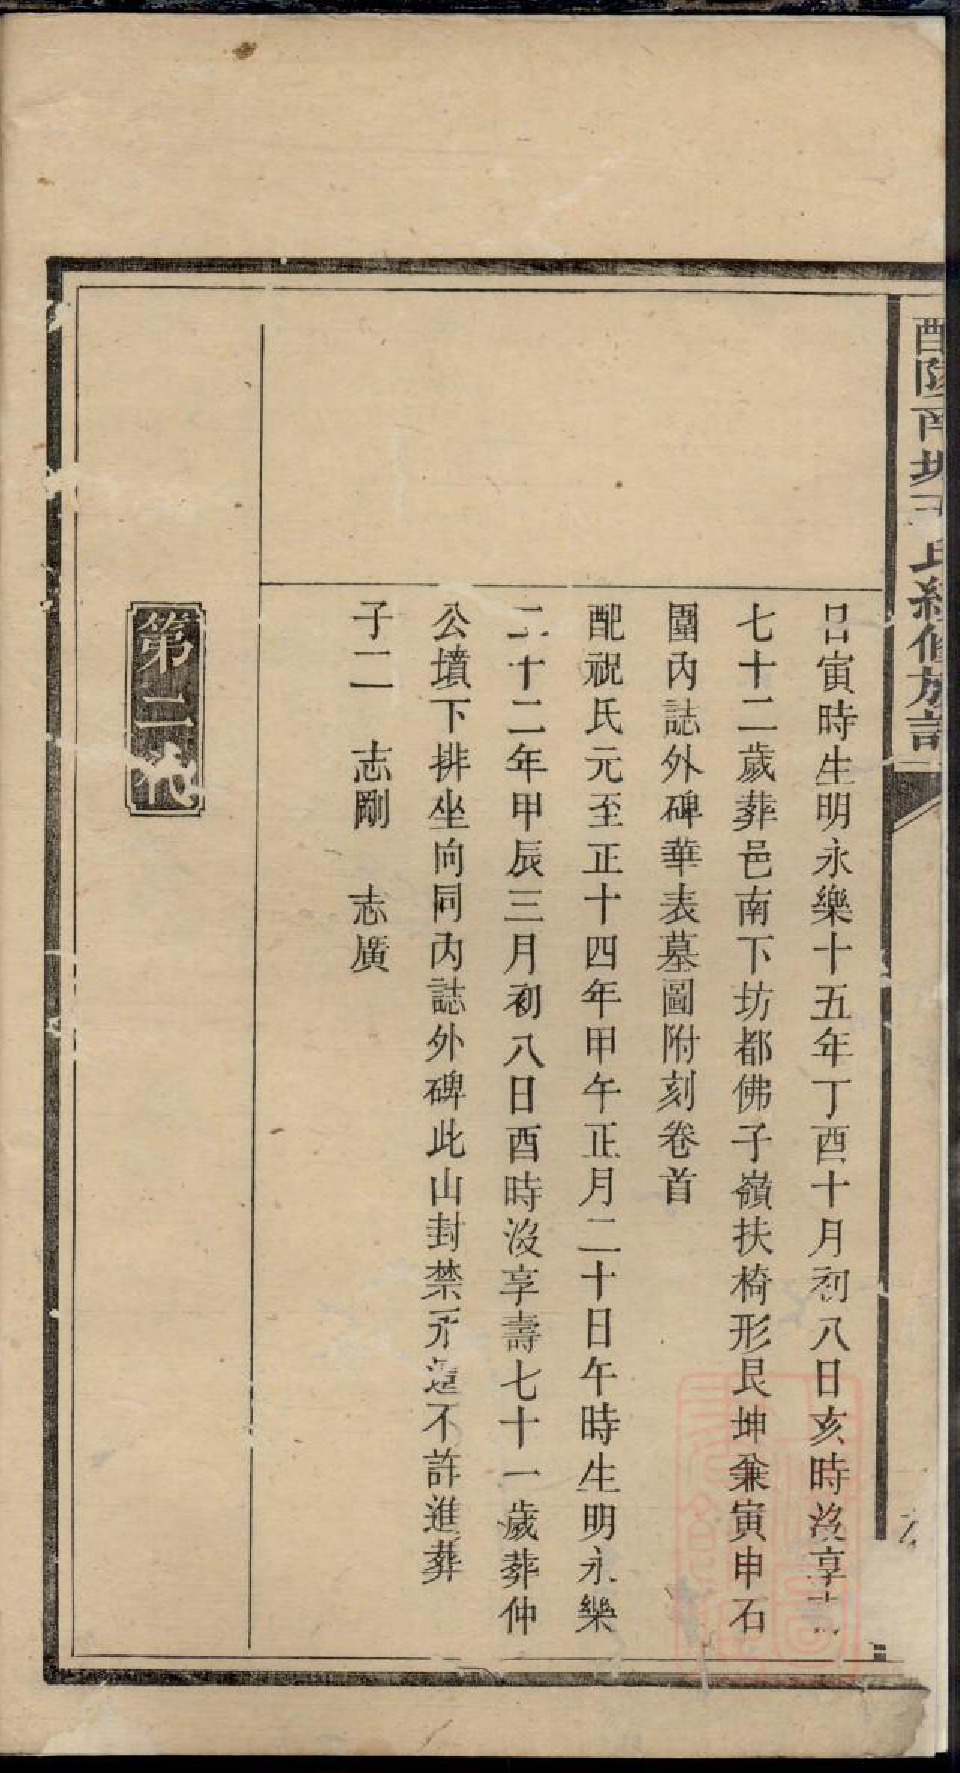 醴陵南城王氏續修族譜
日寅時生明永樂十五年丁酉十月初八日亥時沒享壽
七十二歲葬邑南下坊都佛子嶺扶椅形艮坤兼寅申石
圍內誌外碑華表墓圖附刻卷首
配祝氏元至正十四年甲午正月二十日午時生明永樂
二十二年甲辰三月初八日酉時沒享壽七十一歲葬仲
公墳下排坐向同內誌外碑此山封禁永遠不許進葬
子二 志剛 志廣
第二代